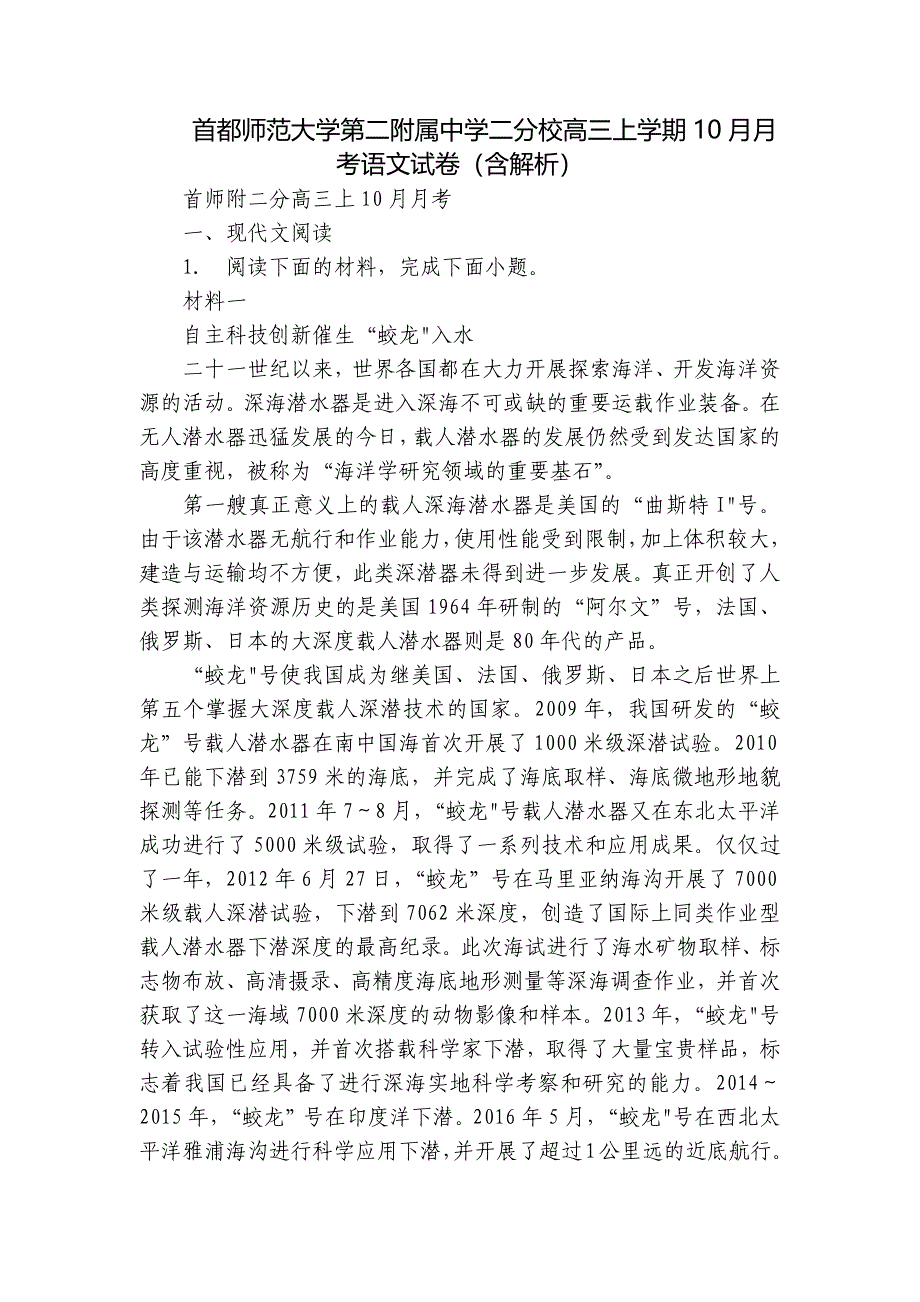 首都师范大学第二附属中学二分校高三上学期10月月
考语文试卷（含解析）
首师附二分高三上10月月考
一、现代文阅读
1． 阅读下面的材料，完成下面小题。
材料一
自主科技创新催生“蛟龙"入水
二十一世纪以来，世界各国都在大力开展探索海洋、开发海洋资
源的活动。深海潜水器是进入深海不可或缺的重要运载作业装备。在
无人潜水器迅猛发展的今日，载人潜水器的发展仍然受到发达国家的
高度重视，被称为“海洋学研究领域的重要基石”。
第一艘真正意义上的载人深海潜水器是美国的“曲斯特I"号。
由于该潜水器无航行和作业能力，使用性能受到限制，加上体积较大，
建造与运输均不方便，此类深潜器未得到进一步发展。真正开创了人
类探测海洋资源历史的是美国1964年研制的“阿尔文”号，法国、
俄罗斯、日本的大深度载人潜水器则是80年代的产品。
“蛟龙"号使我国成为继美国、法国、俄罗斯、日本之后世界上
第五个掌握大深度载人深潜技术的国家。2009年，我国研发的“蛟
龙”号载人潜水器在南中国海首次开展了1000米级深潜试验。2010
年已能下潜到3759米的海底，并完成了海底取样、海底微地形地貌
探测等任务。2011年7～8月，“蛟龙"号载人潜水器又在东北太平洋
成功进行了5000米级试验，取得了一系列技术和应用成果。仅仅过
了一年，2012年6月27日，“蛟龙”号在马里亚纳海沟开展了7000
米级载人深潜试验，下潜到7062米深度，创造了国际上同类作业型
载人潜水器下潜深度的最高纪录。此次海试进行了海水矿物取样、标
志物布放、高清摄录、高精度海底地形测量等深海调查作业，并首次
获取了这一海域7000米深度的动物影像和样本。2013年，“蛟龙"号
转入试验性应用，并首次搭载科学家下潜，取得了大量宝贵样品，标
志着我国已经具备了进行深海实地科学考察和研究的能力。2014～
2015年，“蛟龙”号在印度洋下潜。2016年5月，“蛟龙"号在西北太
平洋雅浦海沟进行科学应用下潜，并开展了超过1公里远的近底航行。